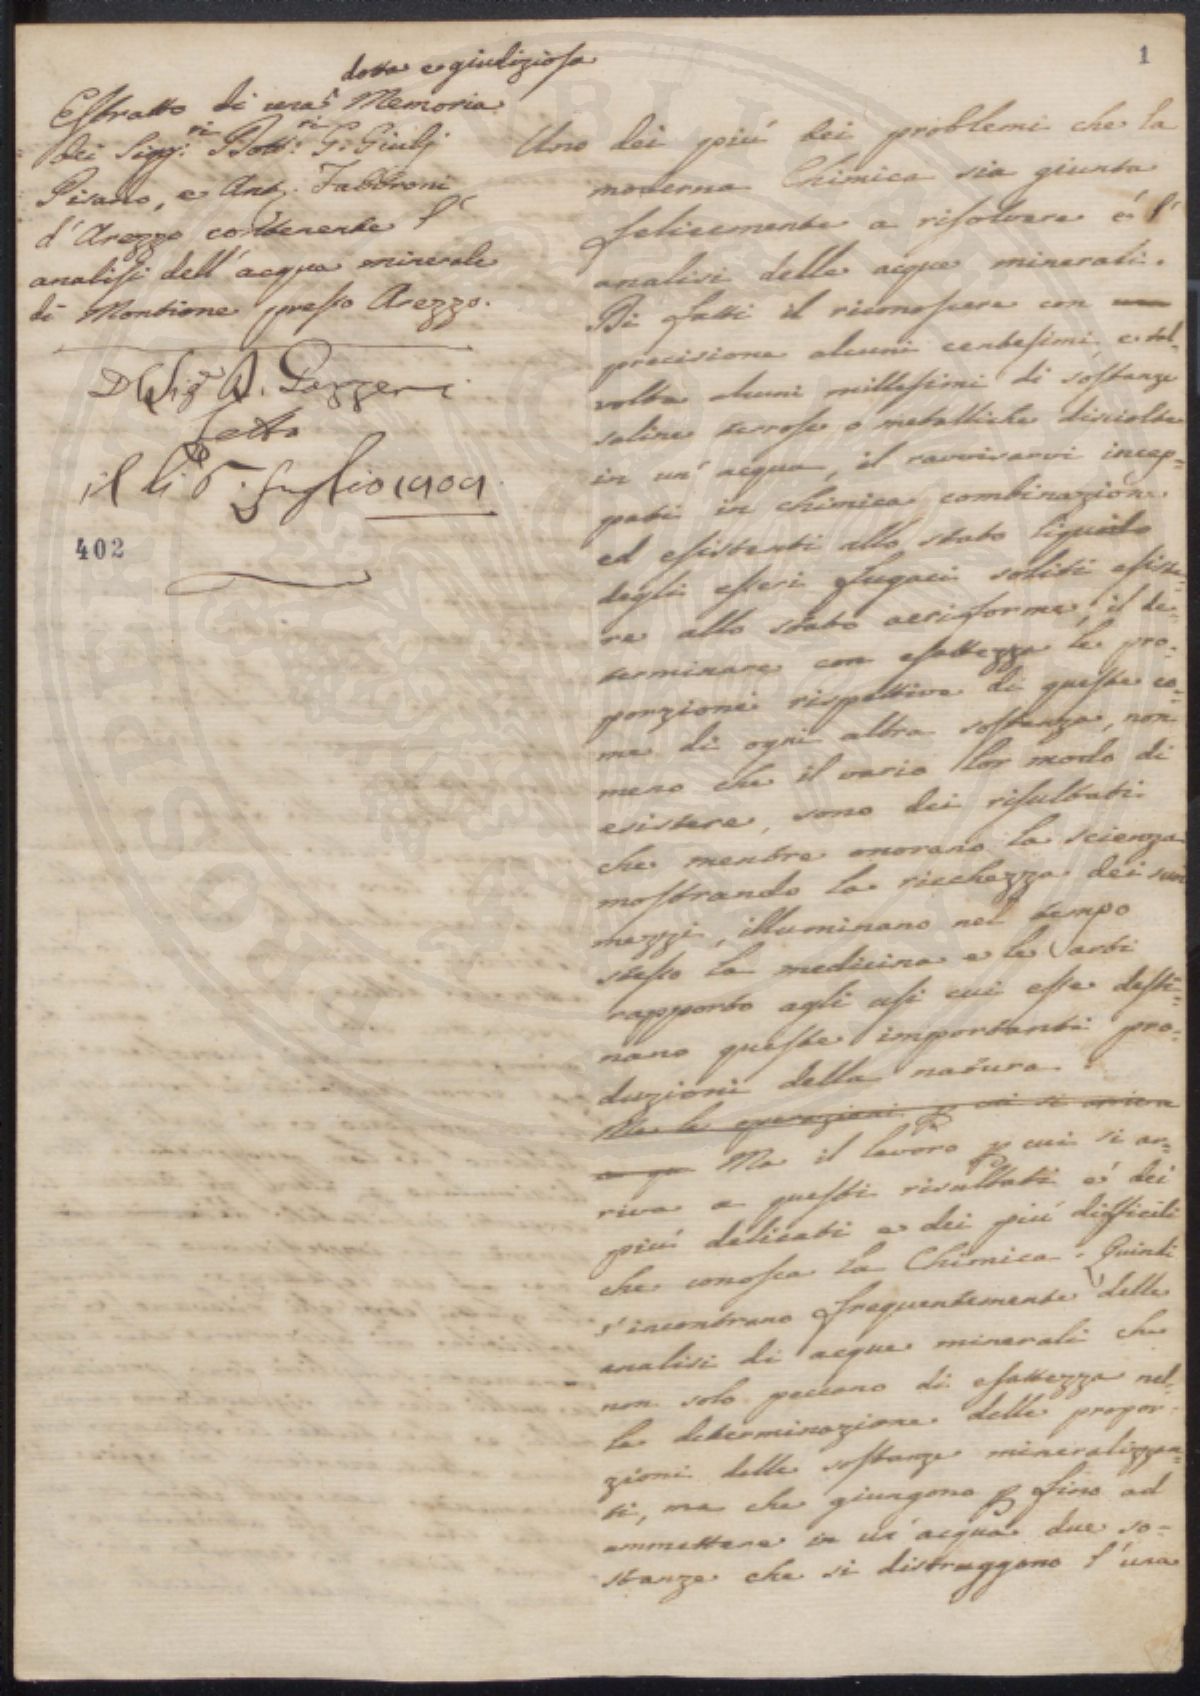 1
dotta e giudiziosa
Estratto di una Memoria
dei Sigg.ri Dott.ri G. Giulj
Pisano, e Ant. Fabbroni
d'Arezzo contenente l'
analisi dell'acqua minerale
di Montione presso Arezzo.
Del Sig. A. Gazzeri
letta
il dì 5. Luglio 1809.
402
Uno dei piú bei problemi che la
moderna Chimica sia giunta
felicemente a risolvere é l'
analisi delle acque minerali.
Di fatti il riconoscere con
precisione alcuni centesimi e tal-
volta alcuni millesimi di sostanze
saline terrose o metalliche disciolte
in un'acqua, il ravvisarvi incep-
pati in chimica combinazione
ed esistenti allo stato liquido
degli esseri fugaci soliti esiste-
re allo stato aeriforme, il de-
terminare con esattezza le pro-
porzioni rispettive di queste co-
me di ogni altra sostanza, non
meno che il vario lor modo di
esistere, sono dei risultati
che mentre onorano la scienza
mostrando la ricchezza dei suoi
mezzi, illuminano nel tempo
stesso la medicina e le arti
rapporto agli usi cui esse desti-
nano queste importanti pro-
duzioni della natura.
Ma le operazioni p cui si arriva
a que Ma il lavoro p cui si ar-
riva a questi risultati é dei
piú delicati e dei piú difficili
che conosca la Chimica. Quindi
s'incontrano frequentemente delle
analisi di acque minerali che
non solo peccano di esattezza nel-
la determinazione delle propor-
zioni delle sostanze mineralizzan-
ti, ma che giungono p fino ad
ammettere in un'acqua due so-
stanze che si distruggono l'una